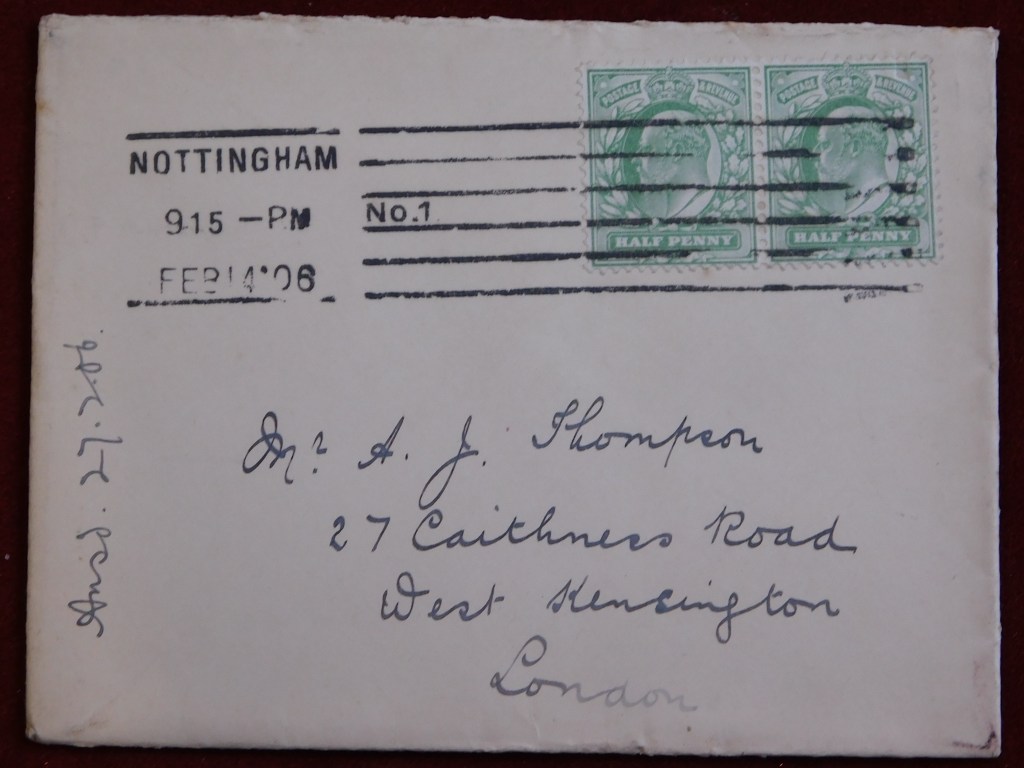 POSTAGE & REVENUE POSTAGE & REVENUE
NOTTINGHAM
9 15 — PM
No. 1
HALF PENNY HALF PENNY
FEB 14 '06
Ansd. 27.2.06.
Mr. A. J. Thompson
27 Caithness Road
West Kensington
London